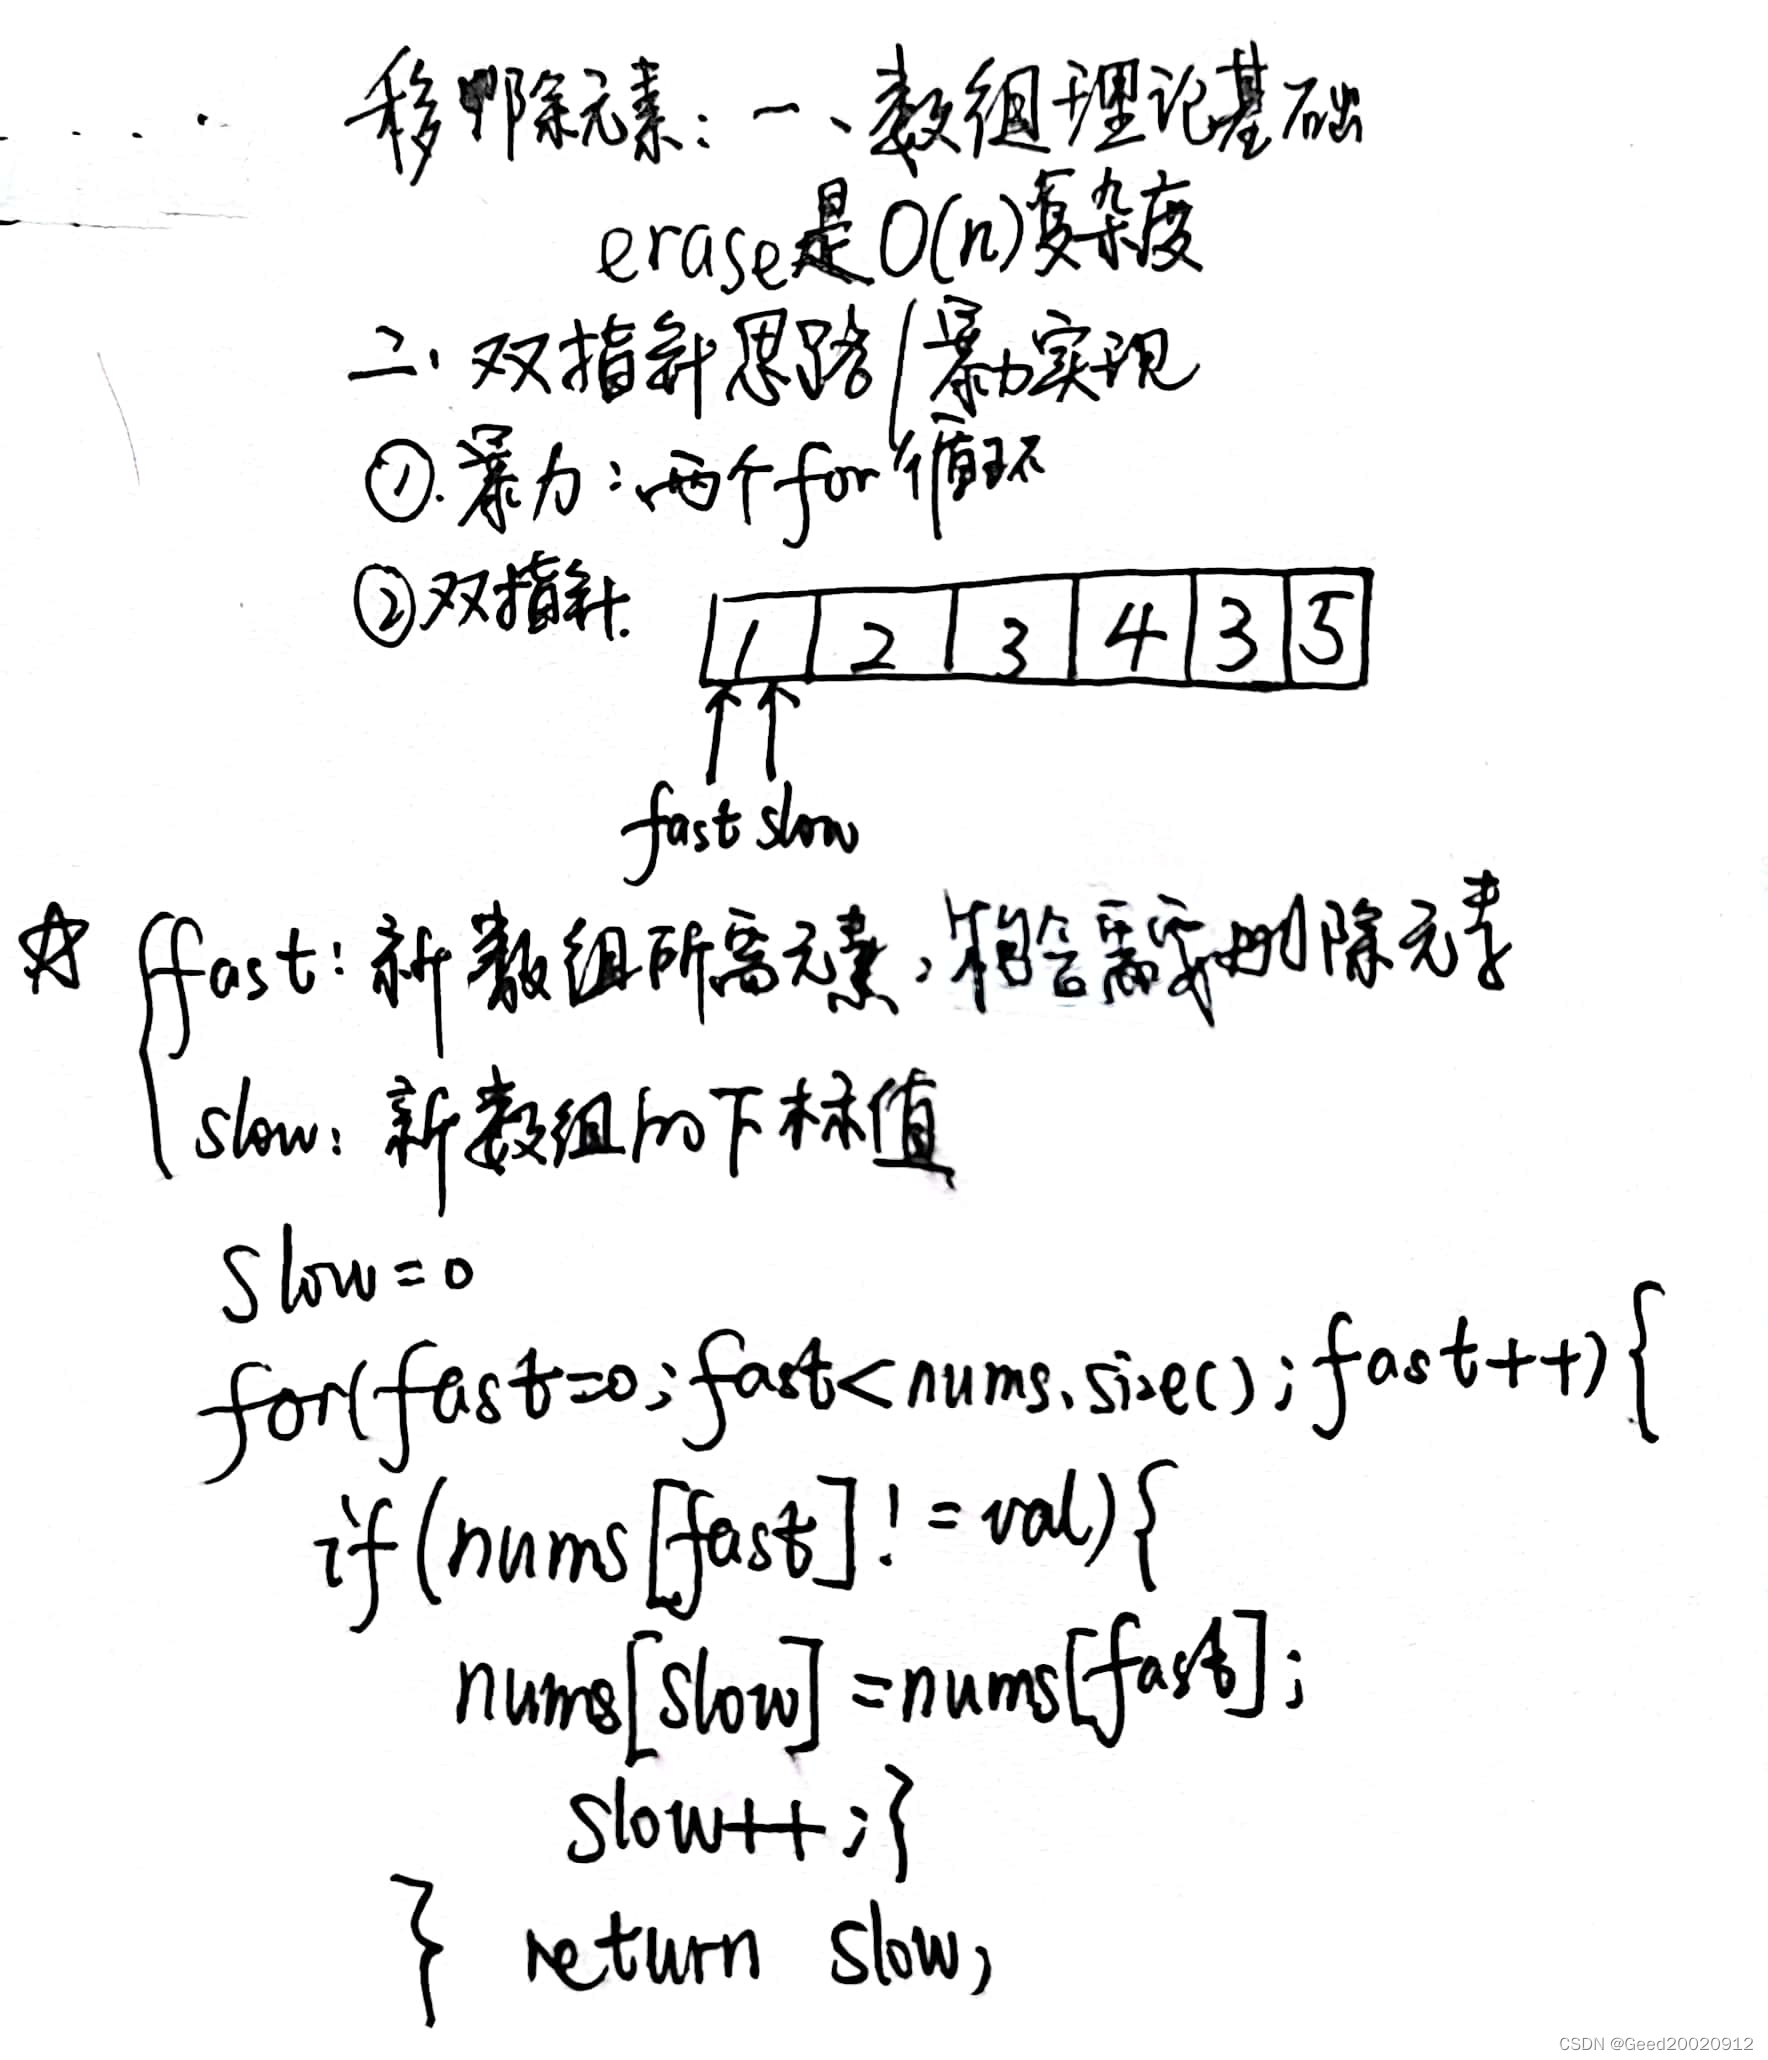 移除元素：一、数组理论基础
erase是O(n)复杂度
二、双指针思路/暴力实现
①.暴力：两个for循环
②双指针.
1 2 3 4 3 5
fast slow
☆ fast：新数组所需元素，不含需要删除元素
slow：新数组的下标值
slow=0
for(fast=0;fast<nums.size();fast++){
if(nums[fast]!=val){
nums[slow]=nums[fast];
slow++;}
} return slow;
CSDN @Geed20020912